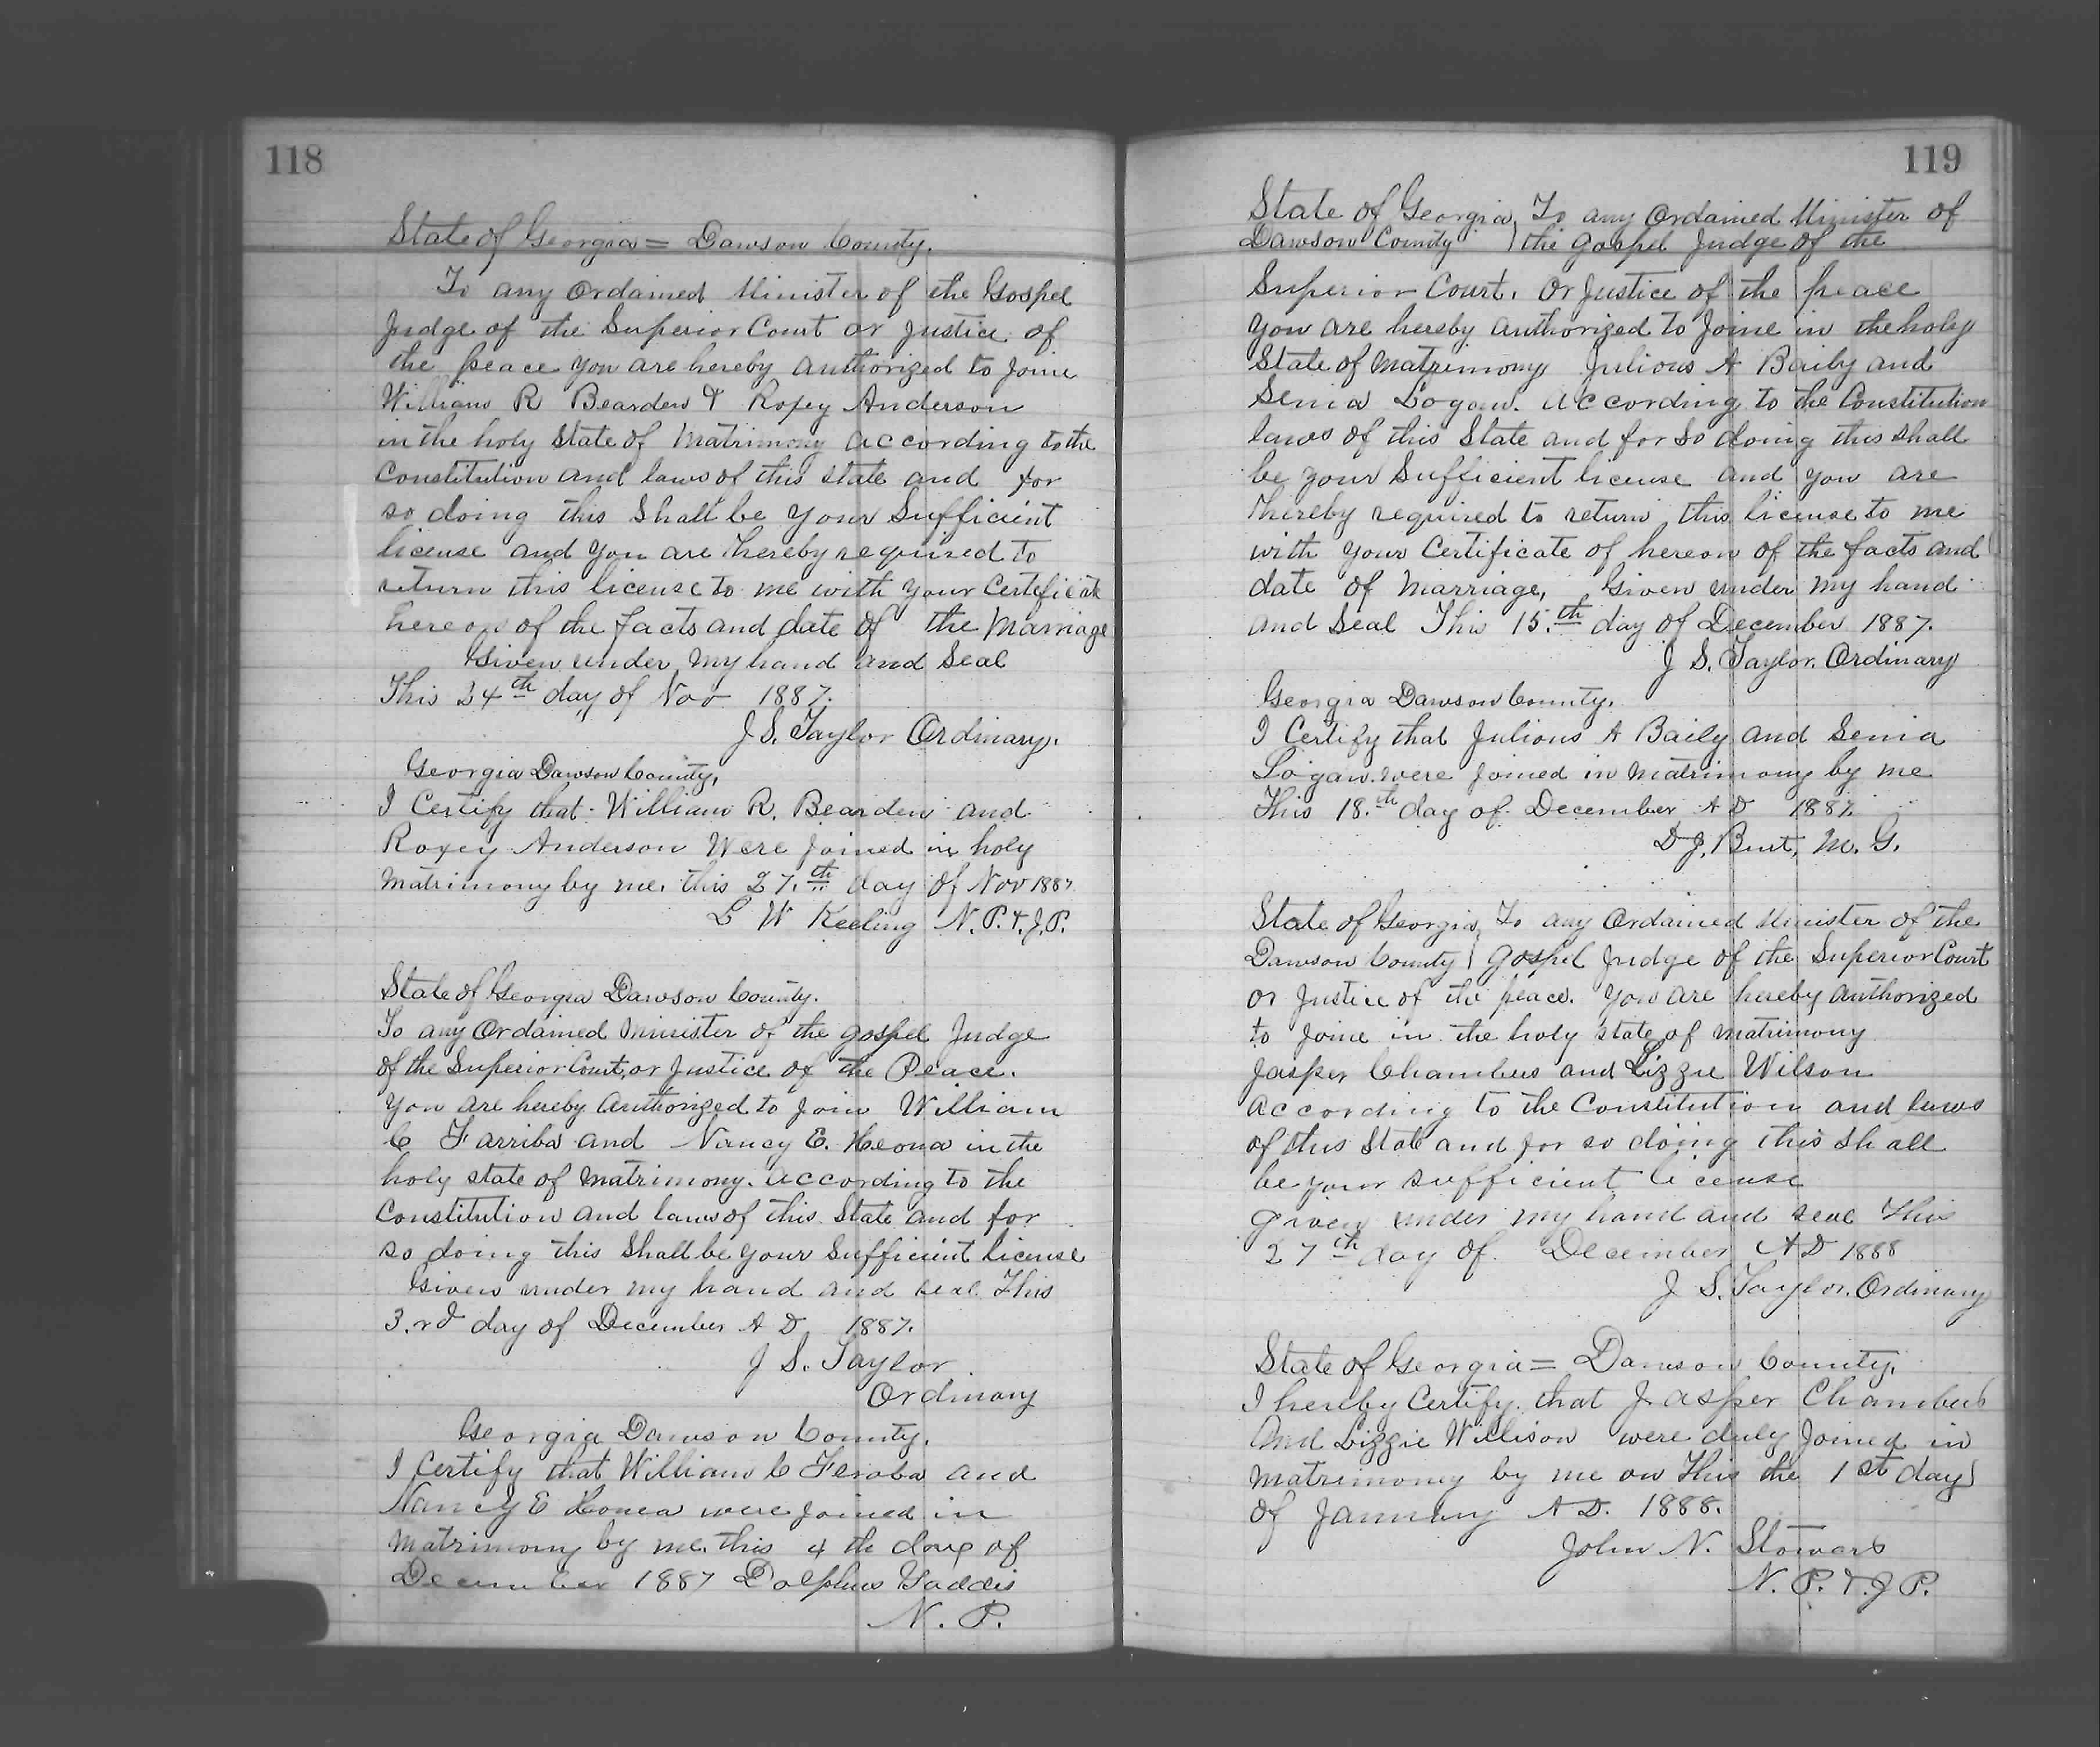 118
State of Georgia = Dawson County.
To any Ordained Minister of the Gospel
Judge of the Superior Court or Justice of
the peace you are hereby authorized to joine
William R Bearden & Roxey Anderson
in the holy State of Matrimony according to the
Constitution and laws of this state and for
so doing this Shall be your Sufficient
license and you are thereby required to
return this license to me with your Certificate
hereon of the facts and date of the Marriage
Given under my hand and Seal
This 24th day of Nov 1887.
J. S. Taylor Ordinary.
Georgia Dawson County,
I Certify that William R. Bearden and
Roxey Anderson Were joined in holy
matrimony by me. this 27.th day of Nov 1887
L W Keeling N. P. & J. P.
State of Georgia Dawson County.
To any Ordained Minister of the gospel Judge
of the Superior Court, or Justice of the Peace.
You are hereby authorized to join William
C Farriba and Nancy E. Heona in the
holy state of matrimony. according to the
Constitution and laws of this State and for
so doing this Shall be your Sufficient license
Given under my hand and seal This
3.rd day of December A D 1887.
J S. Taylor
Ordinary
Georgia Dawson County.
I Certify that William C Feraba and
Nancy E Honea were joined in
matrimony by me. this 4 th day of
December 1887 Dolphus Gaddis
N. P.
119
State of Georgia To any Ordained Minister of
Dawson County } the gospel Judge of the
Superior Court. Or Justice of the peace
you are hereby authorized to Joine in the holy
State of matrimony Julious A Baily and
Senia Logan. according to the Constitution
laws of this State and for so doing this shall
be your Sufficient license and you are
thereby required to return this license to me
with your Certificate of hereon of the facts and
date of marriage, Given under my hand
and Seal This 15.th day of December 1887.
J S. Taylor. Ordinary
Georgia Dawson County.
I Certify that Julious A Baily and Senia
Logan were joined in matrimony by me
This 18.th day of December A D 1887.
D J. Burt, M. G.
State of Georgia To any Ordained Minister of the
Dawson County } gospel Judge of the Superior Court
or Justice of the peace. You are hereby authorized
to joine in the holy state of matrimony
Jasper Chambers and Lizzie Wilson
according to the Constitution and laws
of this State and for so doing this shall
be your sufficient license
given under my hand and seal This
27th day of December A D 1888
J S. Taylor. Ordinary
State of Georgia = Dawson County.
I hereby Certify that Jasper Chambers
And Lizzie Willison were duly joined in
matrimony by me on This the 1st day
of January A D. 1888.
John N. Stowers
N. P. & J P.